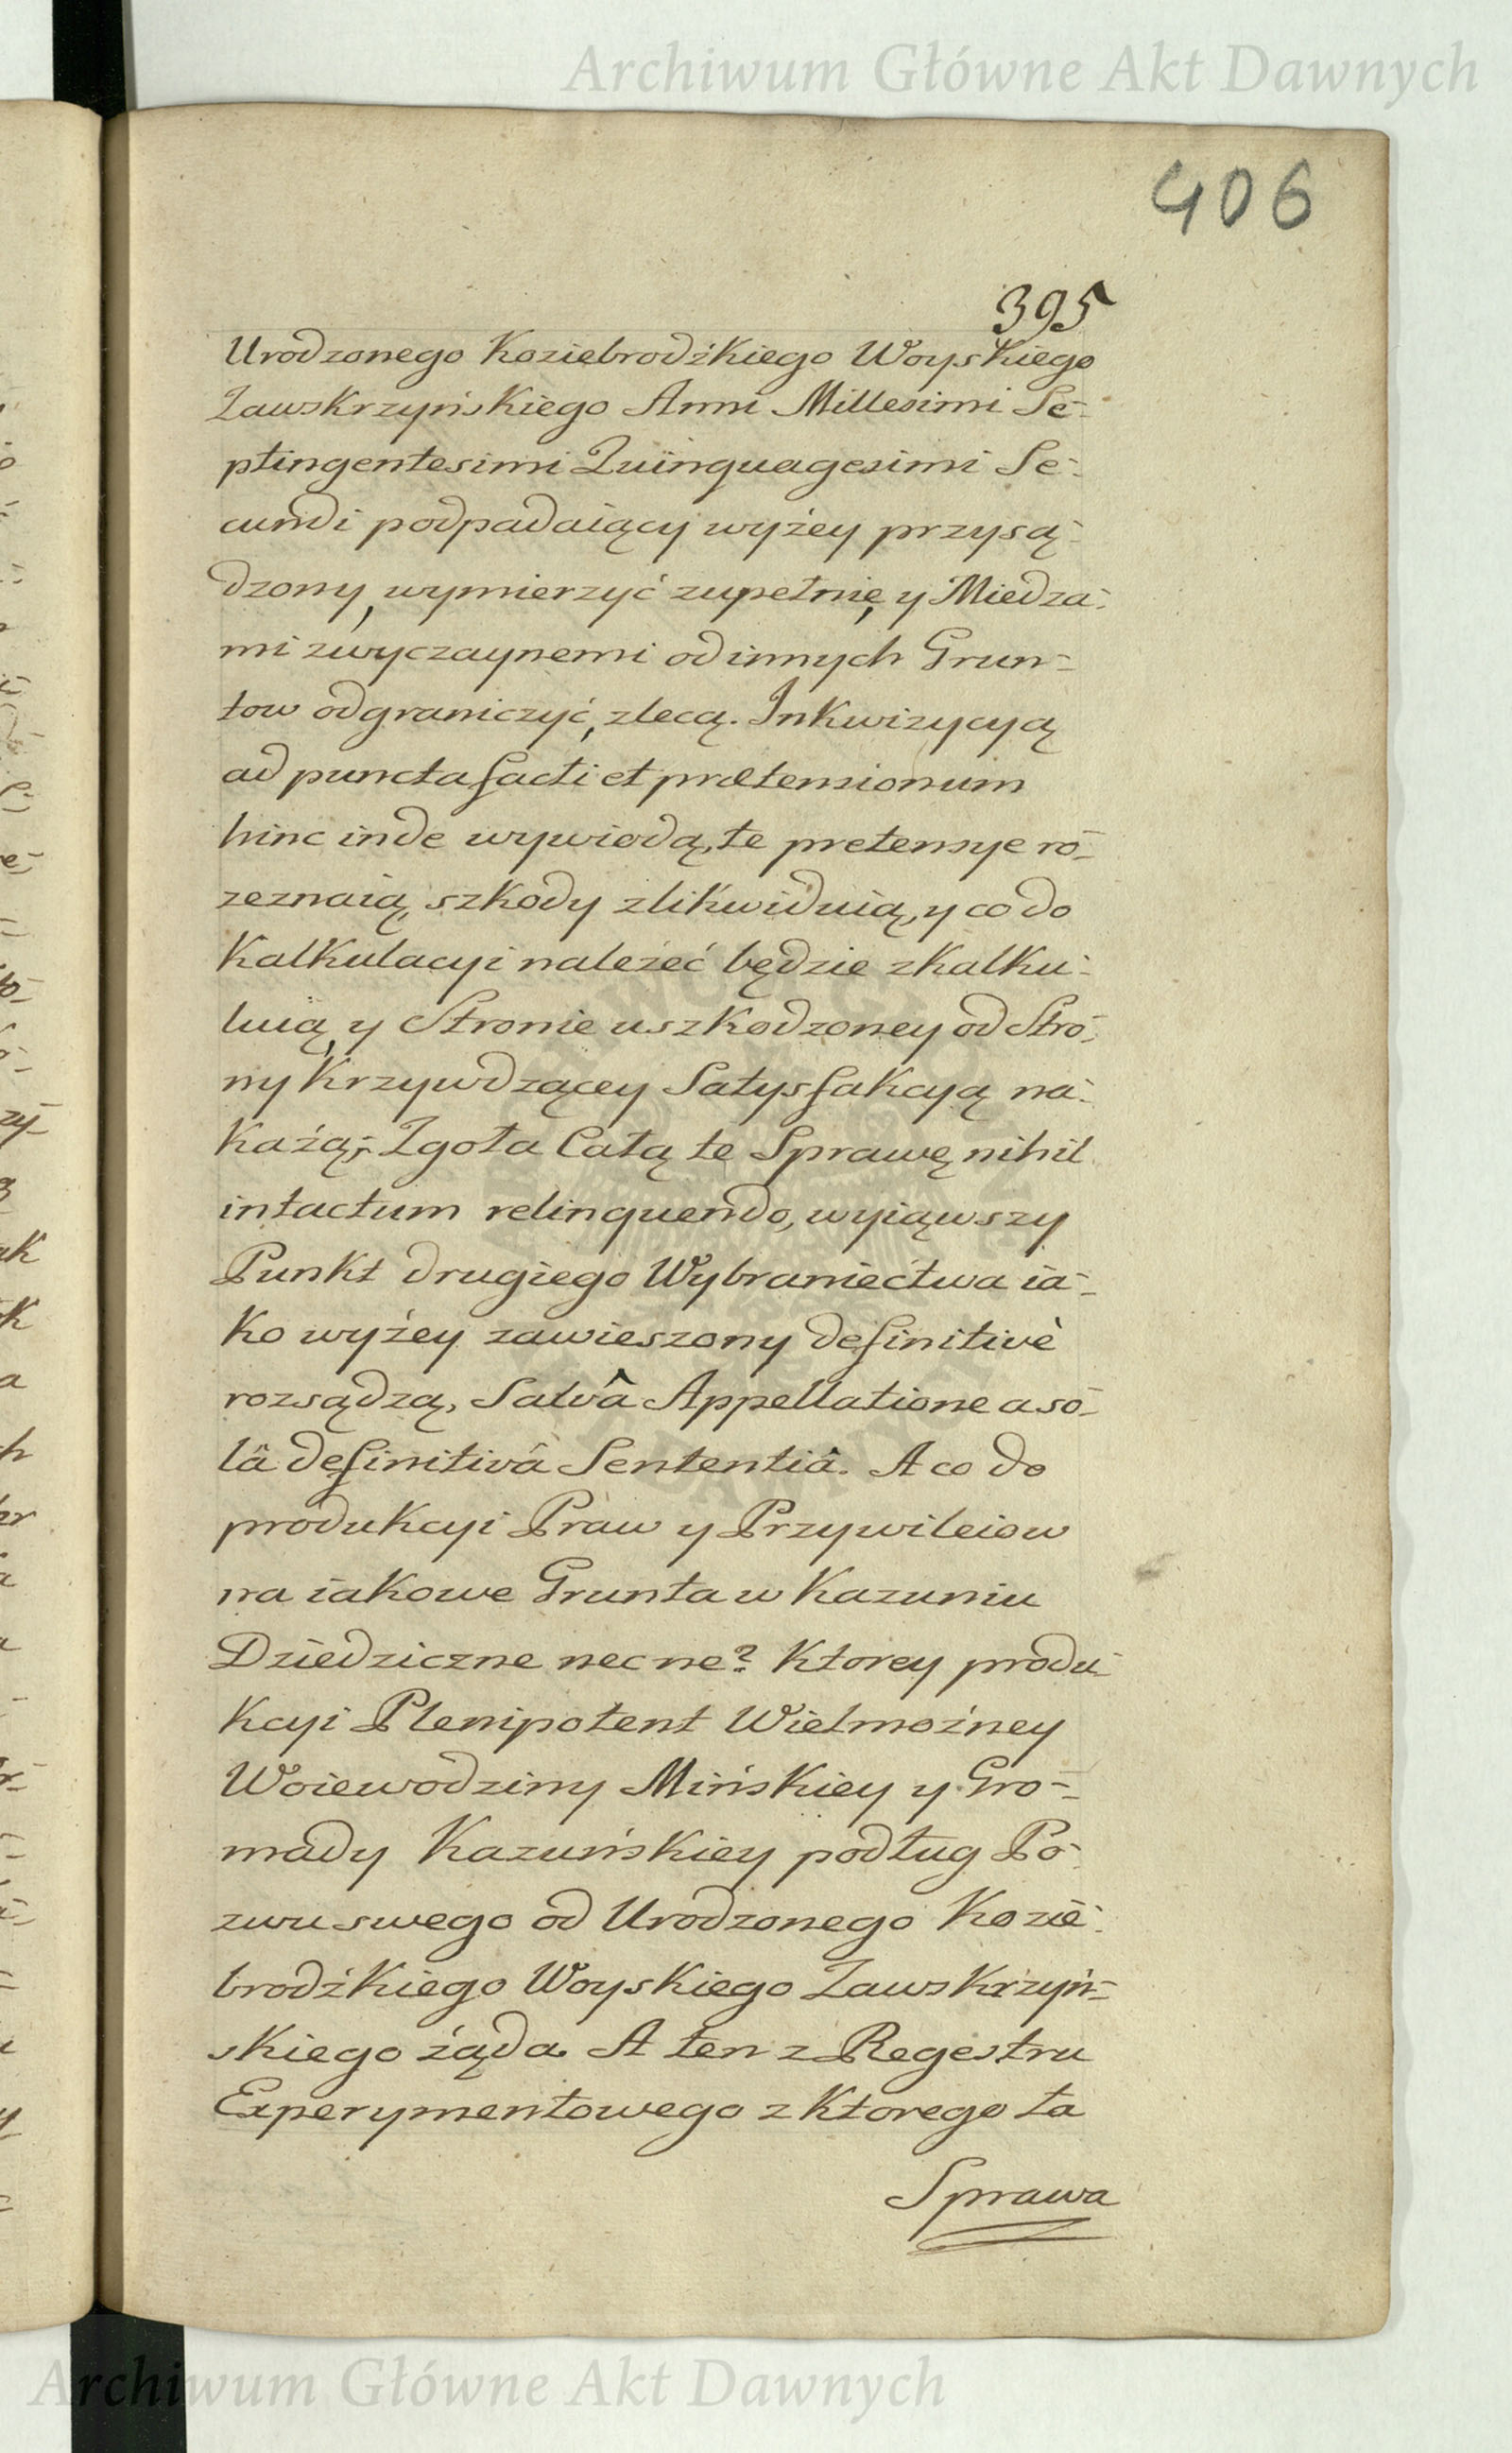 Archiwum Główne Akt Dawnych
406
395
Urodzonego Koziebrodźkiego Woyskiego
Zawskrzyńskiego Anni Millesimi Se-
ptingentesimi Quinquagesimi Se-
cundi podpadaiący wyżey przysą-
dzony, wymierzyć zupełnie, y Miedza-
mi zwyczaynemi od innych Grun-
tow odgraniczyć, zlecą. Inkwizycyą
ad puncta facti et prætensionum
hinc inde wywiodą, te pretensye ro-
zeznaią, szkody zlikwiduią, y co do
Kalkulacyi należeć będzie zkalku-
luią, y Stronie uszkodzoney od Stro-
ny Krzywdzącey Satysfakcyą na-
każą; Zgoła Całą te Sprawę nihil
intactum relinquendo, wyiąwszy
Punkt drugiego Wybraniectwa ia-
ko wyżey zawieszony definitivè
rozsądzą, Salvâ Appellatione a so-
lâ definitivâ Sententiâ. A co do
produkcyi Praw y Przywileiow
na iakowe Grunta w Kazuniu
Dziedziczne nec ne? Ktorey produ-
kcyi Plenipotent Wielmożney
Woiewodziny Mińskiey y Gro-
mady Kazuńskiey podług Po-
zwu swego od Urodzonego Kozie-
brodźkiego Woyskiego Zawskrzyń-
skiego żąda. A ten z Regestru
Experymentowego z Ktorego ta
Sprawa
Archiwum Główne Akt Dawnych